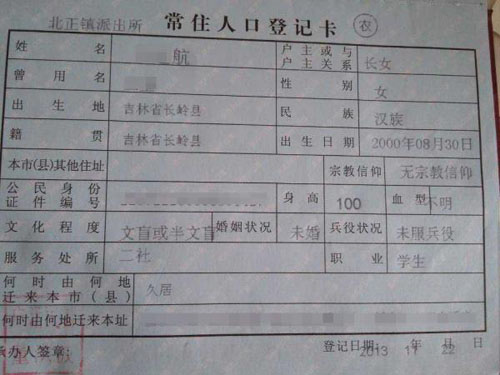 北正镇派出所 常住人口登记卡 农
姓名 航 户主或与户主关系 长女
曾用名 性别 女
出生地 吉林省长岭县 民族 汉族
籍贯 吉林省长岭县 出生日期 2000年08月30日
本市(县)其他住址 宗教信仰 无宗教信仰
公民身份证件编号 身高 100 血型 不明
文化程度 文盲或半文盲 婚姻状况 未婚 兵役状况 未服兵役
服务处所 二社 职业 学生
何时由何地迁来本市(县) 久居
何时由何地迁来本址
承办人签章: 登记日期: 2013 年 月 22 日